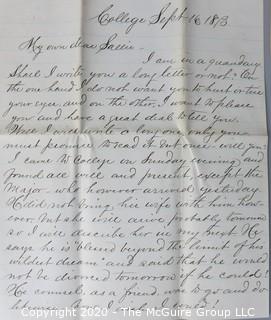 College Sept 16 1873
My own dear Sallie.
I am in a quandary
Shall I write you a long letter or not? On
the one hand I do not want you to hurt or tire
your eyes and on the other, I want to please
you and have a great deal to tell you.
Well I will write a long one only you
must promise to read it but once will you?
I came to College on Sunday evening and
found all well and present, except the
Major who however arrived yesterday
He did not bring his wife with him how-
ever but she will arrive probably tomorrow
so I will describe her in my next He
says he is "blessed beyond the limit of his
wildest dream" and said that he would
not be divorced tomorrow if he could!
He counsels, as a friend, me to go and do
likewise if I could!
Copyright © 2020 - The McGuire Group LLC